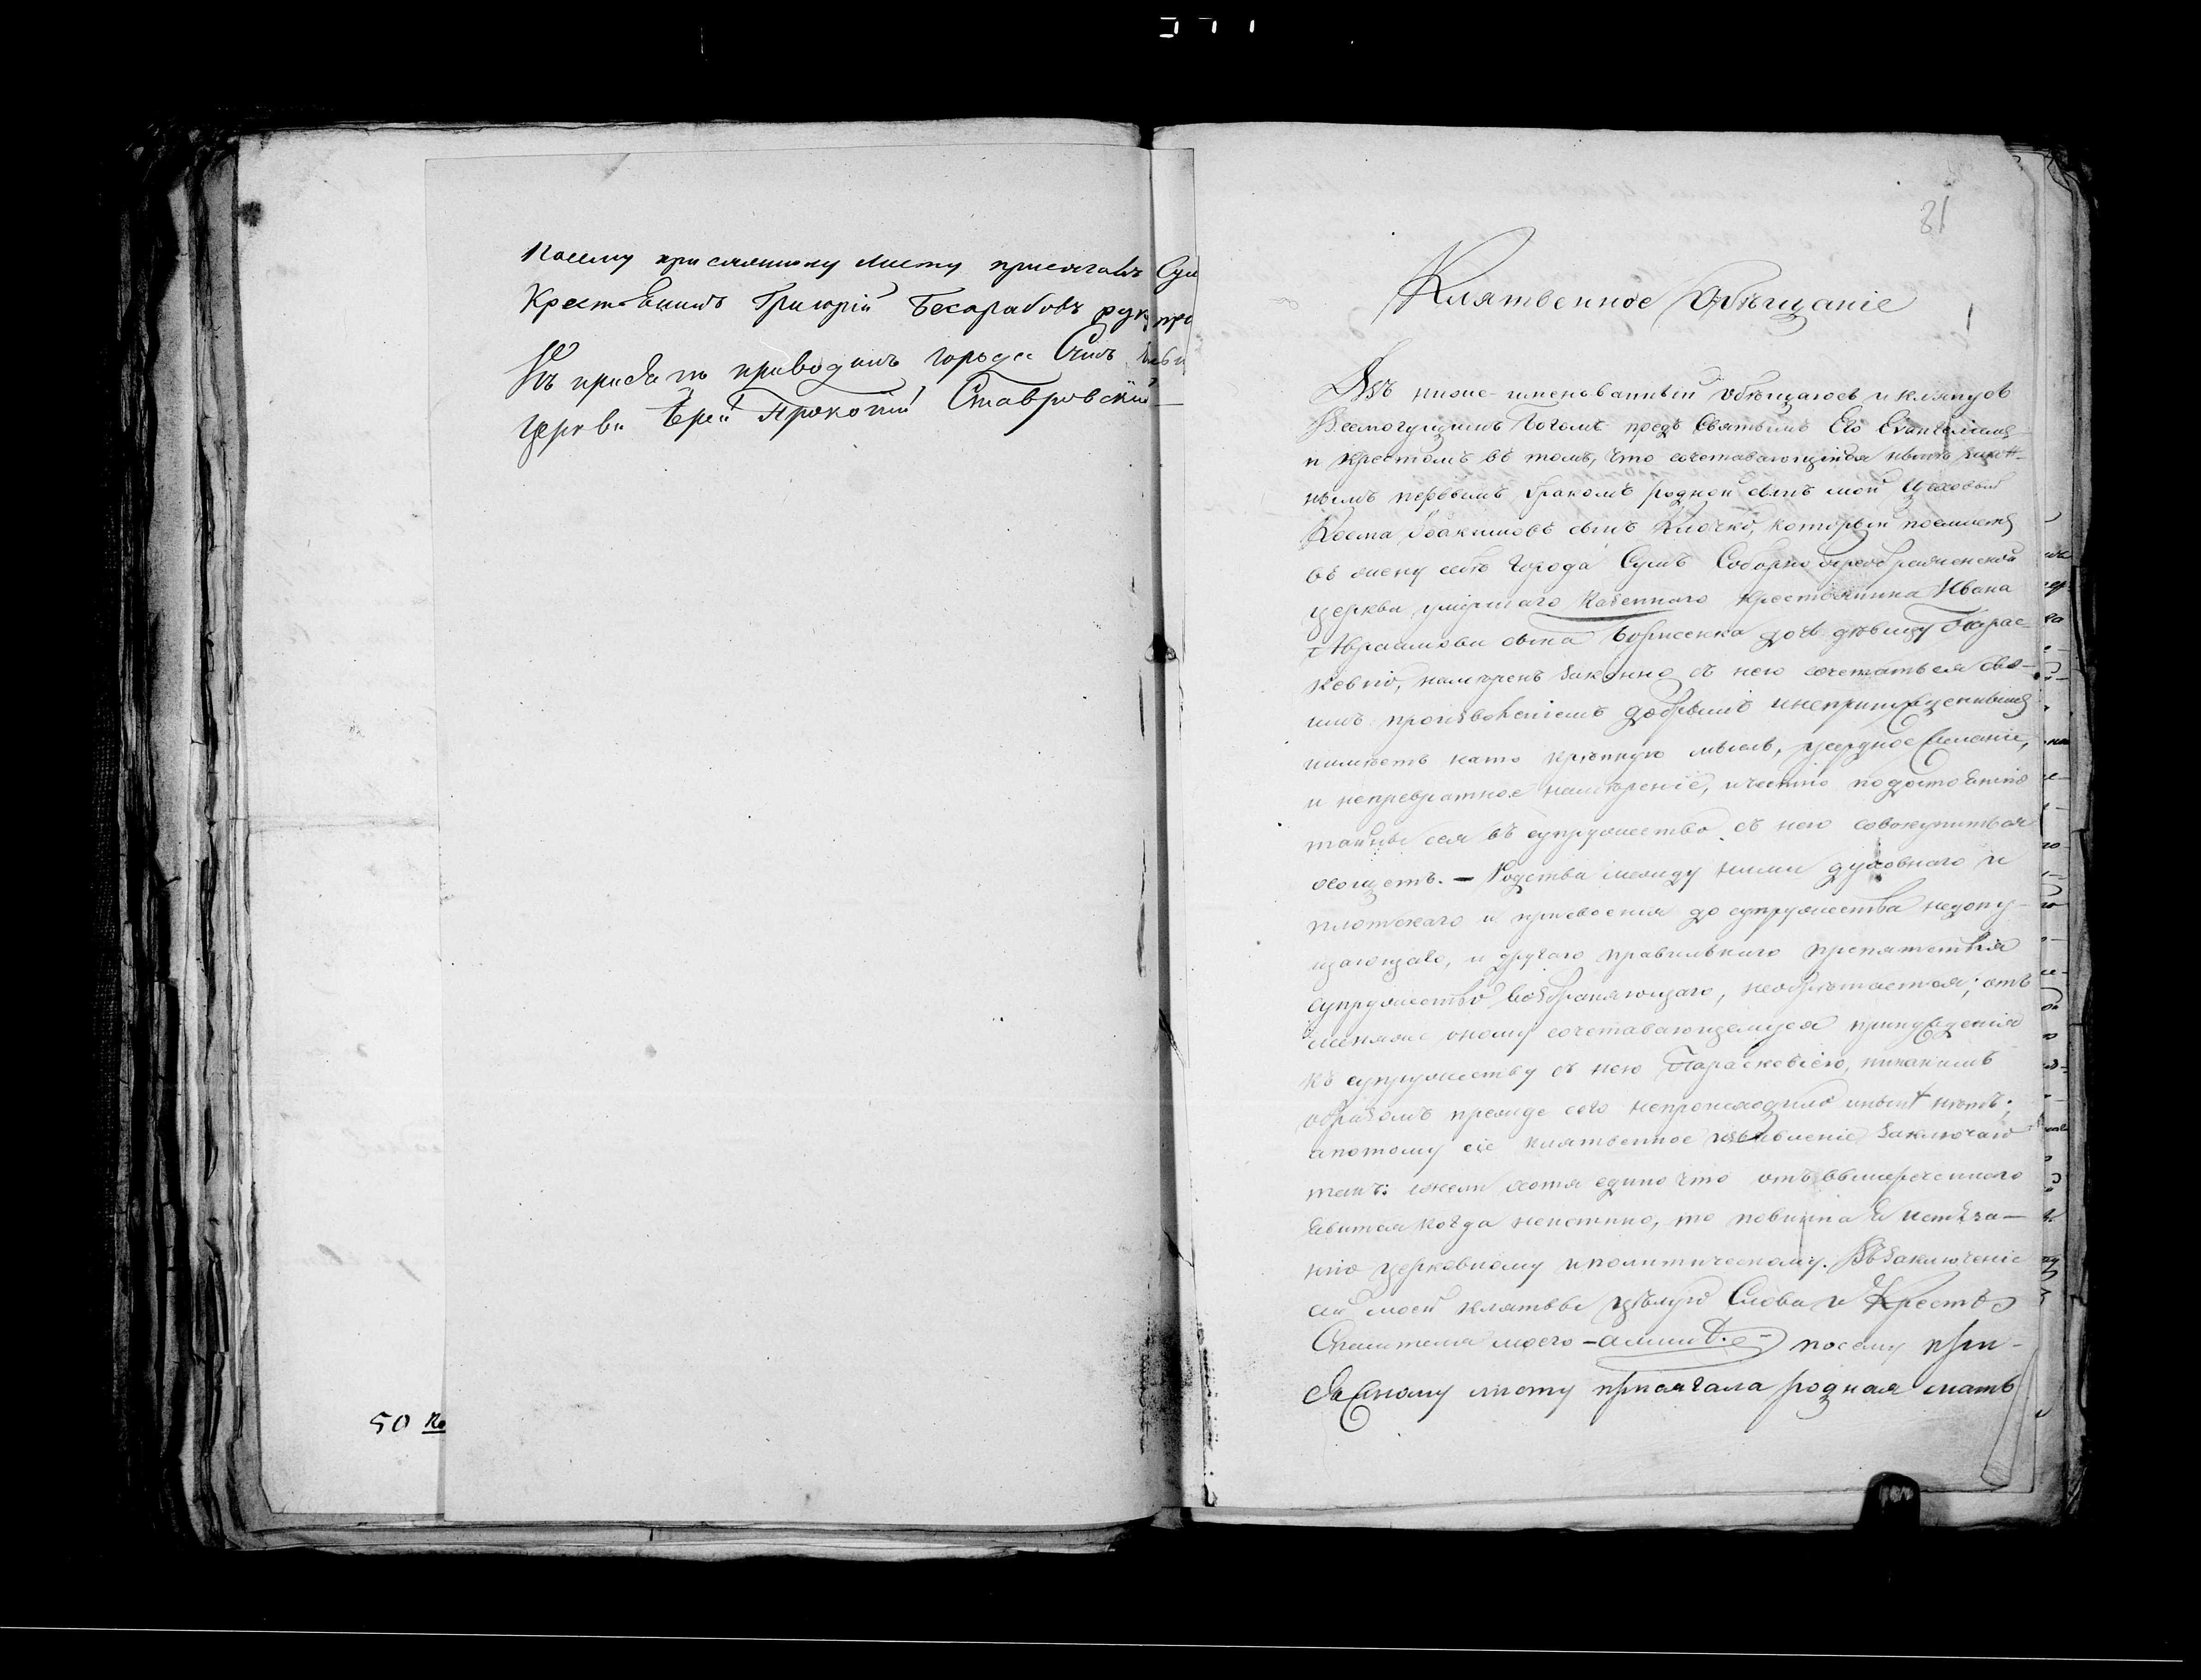 Посему присяжному листу присягалъ Сум
Крестьянинъ Григорій Бесарабовъ руку при
Къ присягѣ приводилъ города Сумъ
церкви Іерей Прокопій Ставровскій
50 ко
81
Клятвенное Обѣщаніе
1
Азъ ниже-именованный обѣщаюсь и клянусь
Всемогущимъ Богомъ предъ Святымъ Его Евангеліемъ
и Крестомъ въ томъ, что сочетавающійся нынѣ закон-
нымъ первымъ бракомъ родной сынъ мой цеховый
Косма Іоакимовъ сынъ Клочко, который поемлетъ
въ жену себѣ города Сумъ Соборно Преображенской
церкви умершаго Казеннаго крестьянина Ивана
Авраамова сына Борисенка дочь дѣвицу Парас-
кевію, намѣренъ законно съ нею сочетаться сво-
имъ произволеніемъ добрымъ и непринужденнымъ
и имѣетъ на то крѣпкую мысль, усердное желаніе,
и непревратное намѣреніе, и честно по достоянію
тайны сея въ супружество съ нею совокупиться
хощетъ. - Родства между ними духовнаго и
плотскаго и присвоенія до супружества недопу-
щающаго, и другаго правильнаго препятствія
супружество возбраняющаго, необрѣтается; отъ
меня же оному сочетавающемуся принужденія
къ супружеству съ нею Параскевіею, никакимъ
образомъ прежде сего непроисходило и нынѣ нѣтъ;
а потому сіе клятвенное изъявленіе заключаю
такъ: ежели хотя едино что отъ вышереченнаго
явится когда неистинно, то повинна я истяза-
нію церковному и политическому. Въ заключеніе
сей моей клятвы цѣлую Слова и Крестъ
Спасителя моего - аминь. - посему при-
сяжному листу присягала родная мать